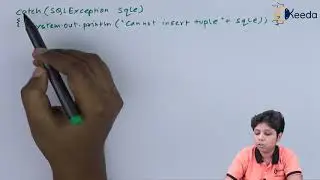 catch (SQLException sqle)
{ System.out.println ("Cannot insert tuple" + sqle); }
Ekeeda